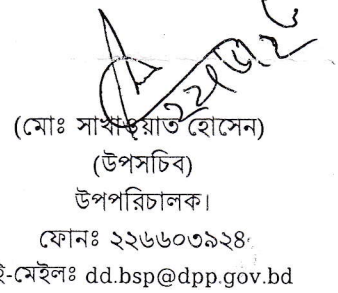 (মোঃ সাখাওয়াত হোসেন)
(উপসচিব)
উপপরিচালক।
ফোনঃ ২২৬৬০৩৯২৪
ই-মেইলঃ dd.bsp@dpp.gov.bd